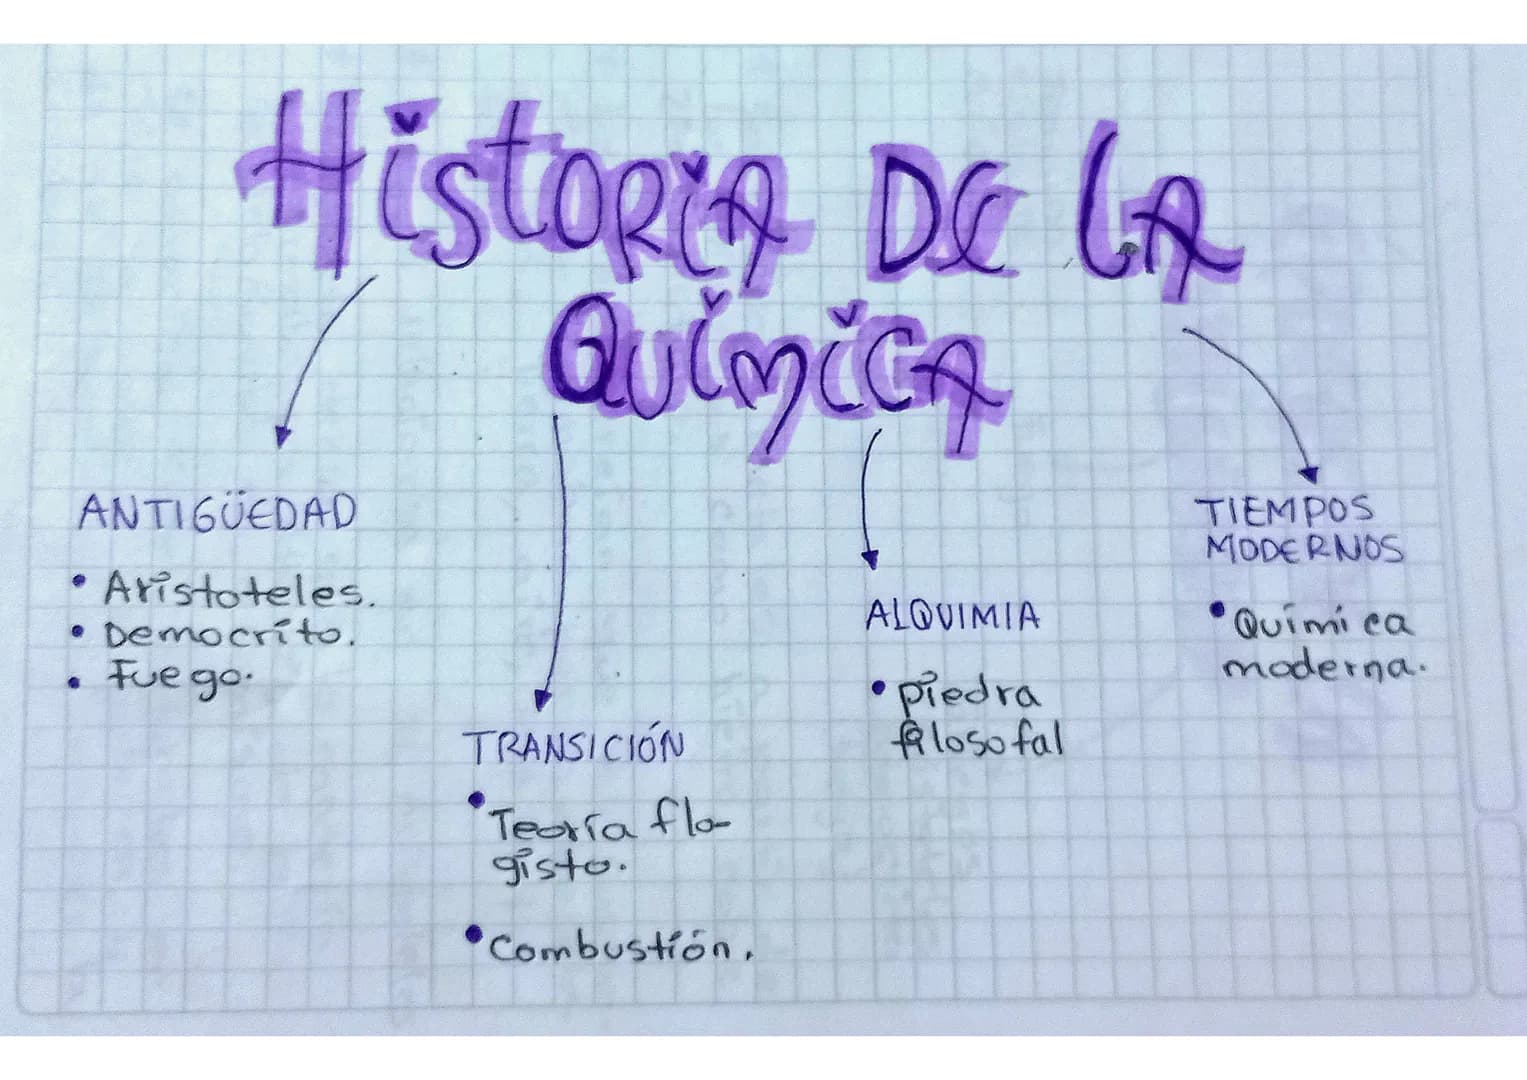 Historia de la
Química
ANTIGÜEDAD
• Aristoteles.
• Democrito.
• Fuego.
TRANSICIÓN
• Teoría flo-
gisto.
• Combustión.
ALQUIMIA
• piedra
filosofal
TIEMPOS
MODERNOS
• Química
moderna.